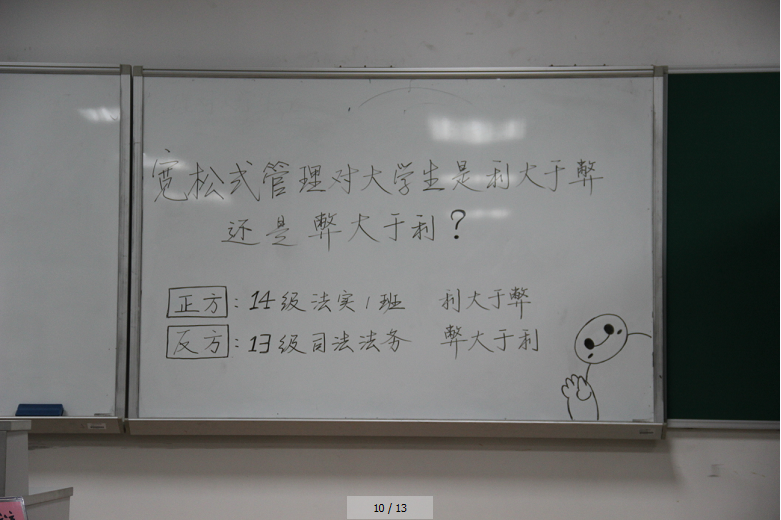 宽松式管理对大学生是利大于弊
还是弊大于利？
正方：14级法实1班 利大于弊
反方：13级司法法务 弊大于利
10 / 13